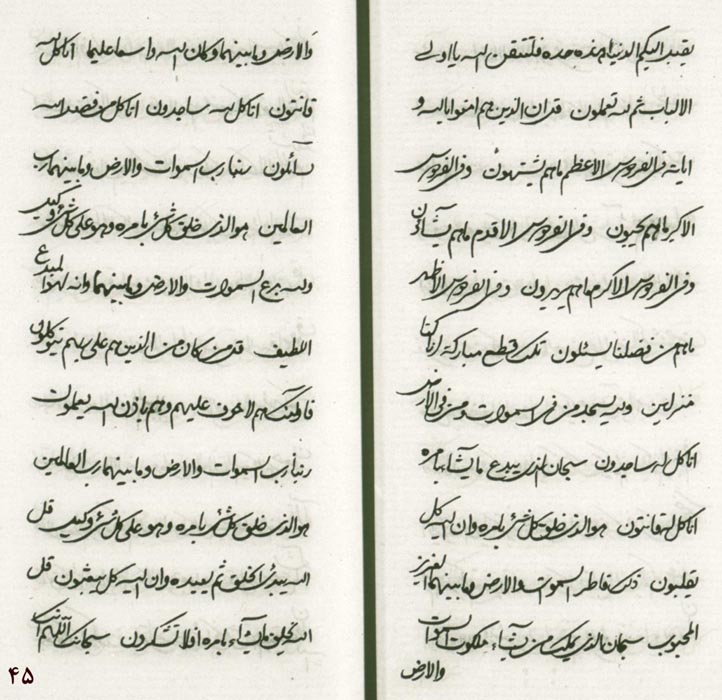 يقبد اليكم الدنيا هذه حده فلتتقن الله يا اولي
الالباب ثم لله تعملون قد ان الذين هم امنوا بالله و
اياته في الفردوس الاعظم ما هم يشتهون وفي الفردوس
الاكبر ما هم يحبون وفي الفردوس الاقدم ما هم يشاؤن
وفي الفردوس الاكرم ما هم يريدون وفي الفردوس الاظهر
ما هم من فضلنا يسئلون تلك قطع مباركة انا كنا
منزلين ولله يسجد من في السموات ومن في الارض
انا كل له ساجدون سبحان الذي يبدع ما يشاء بامره
انا كل له قانتون هو الذي خلق كل شئ بامره وان اليه كل
يقلبون ذلك فاطر السموات والارض وما بينهما العزيز
المحبوب سبحان الذي يملك من يشاء ملكوت السموات
والارض
والارض وما بينهما وكان الله واسعا عليما انا كل لله
قانتون انا كل لله ساجدون انا كل من فضل الله
سائلون ربنا رب السموات والارض وما بينهما رب
العالمين هو الذي خلق كل شئ بامره وهو على كل شئ وكيد
ولله بدع السموات والارض وما بينهما وانه لهو المبدع
اللطيف قد من كان من الذين هم على ربهم يتوكلون
فاولئك هم لا خوف عليهم وهم باذن الله يعملون
ربنا رب السموات والارض وما بينهما رب العالمين
هو الذي خلق كل شئ بامره وهو على كل شئ وكيد قل
الله يبدئ الخلق ثم يعيده وان اليه كل يبعثون قل
الله يخلق ما يشاء بامره افلا تشكرون سبحانك اللهم انك
۴۵